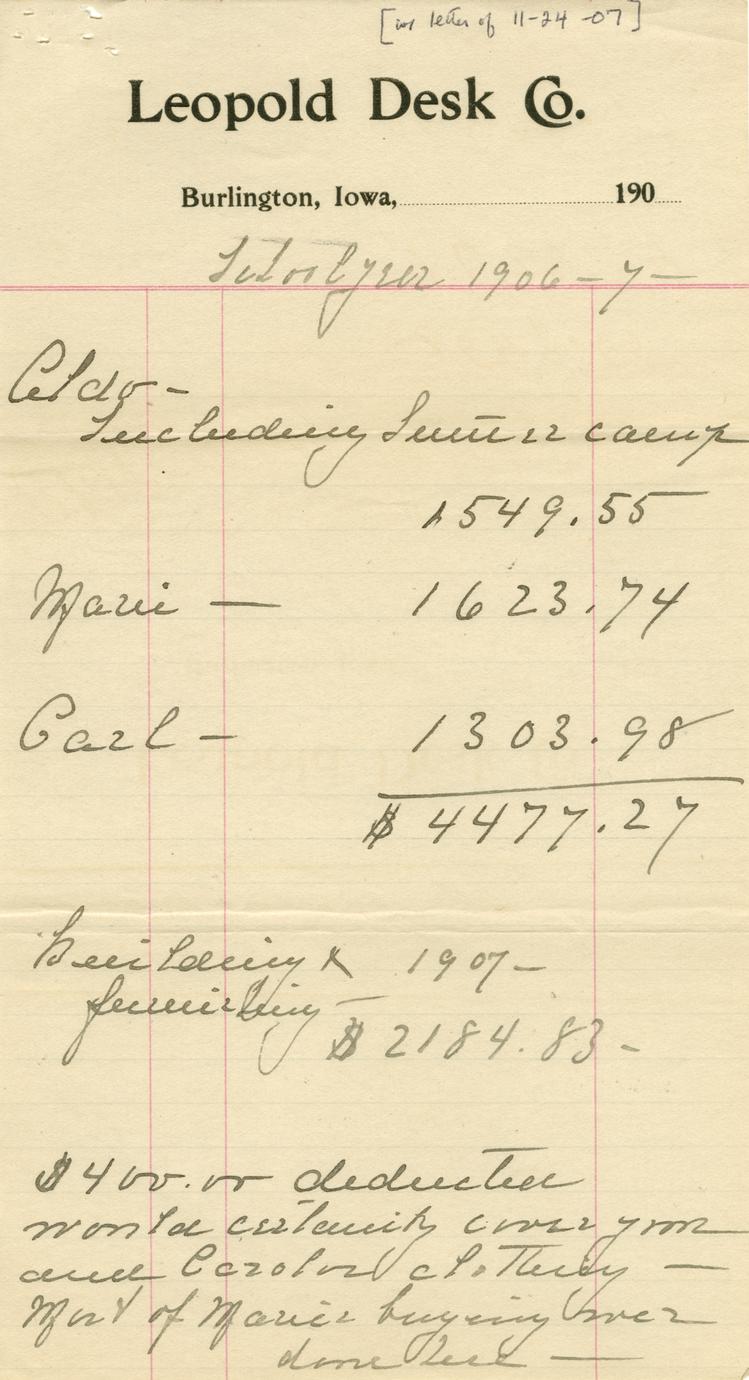 [w letter of 11-24-07]
Leopold Desk Co.
Burlington, Iowa, 190
School year 1906-7-
Aldo-
Including Summer camp
1549.55
Marie - 1623.74
Carl - 1303.98
$4477.27
Building & 1907-
furnishing-
$2184.83-
$400.00 deducted
would certainly cover your
and Carolo clothing -
Most of Maries buying was
done here -